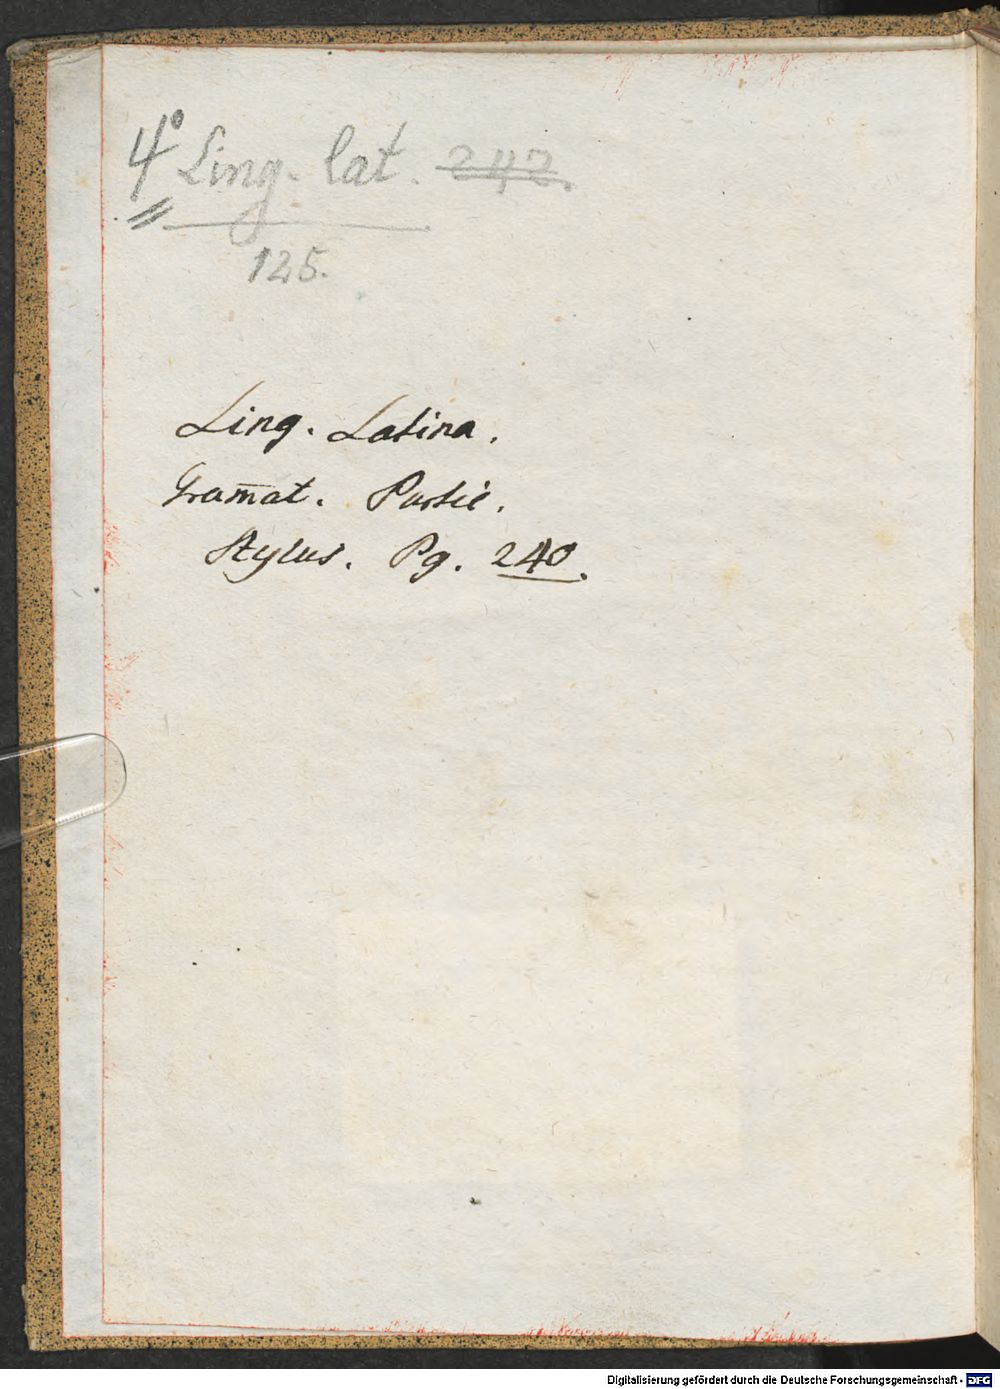 4° Ling. lat. 242.
125.
Ling. Latina.
Gram̅at. Partic.
Stylus. Pg. 240.
Digitalisierung gefördert durch die Deutsche Forschungsgemeinschaft - DFG